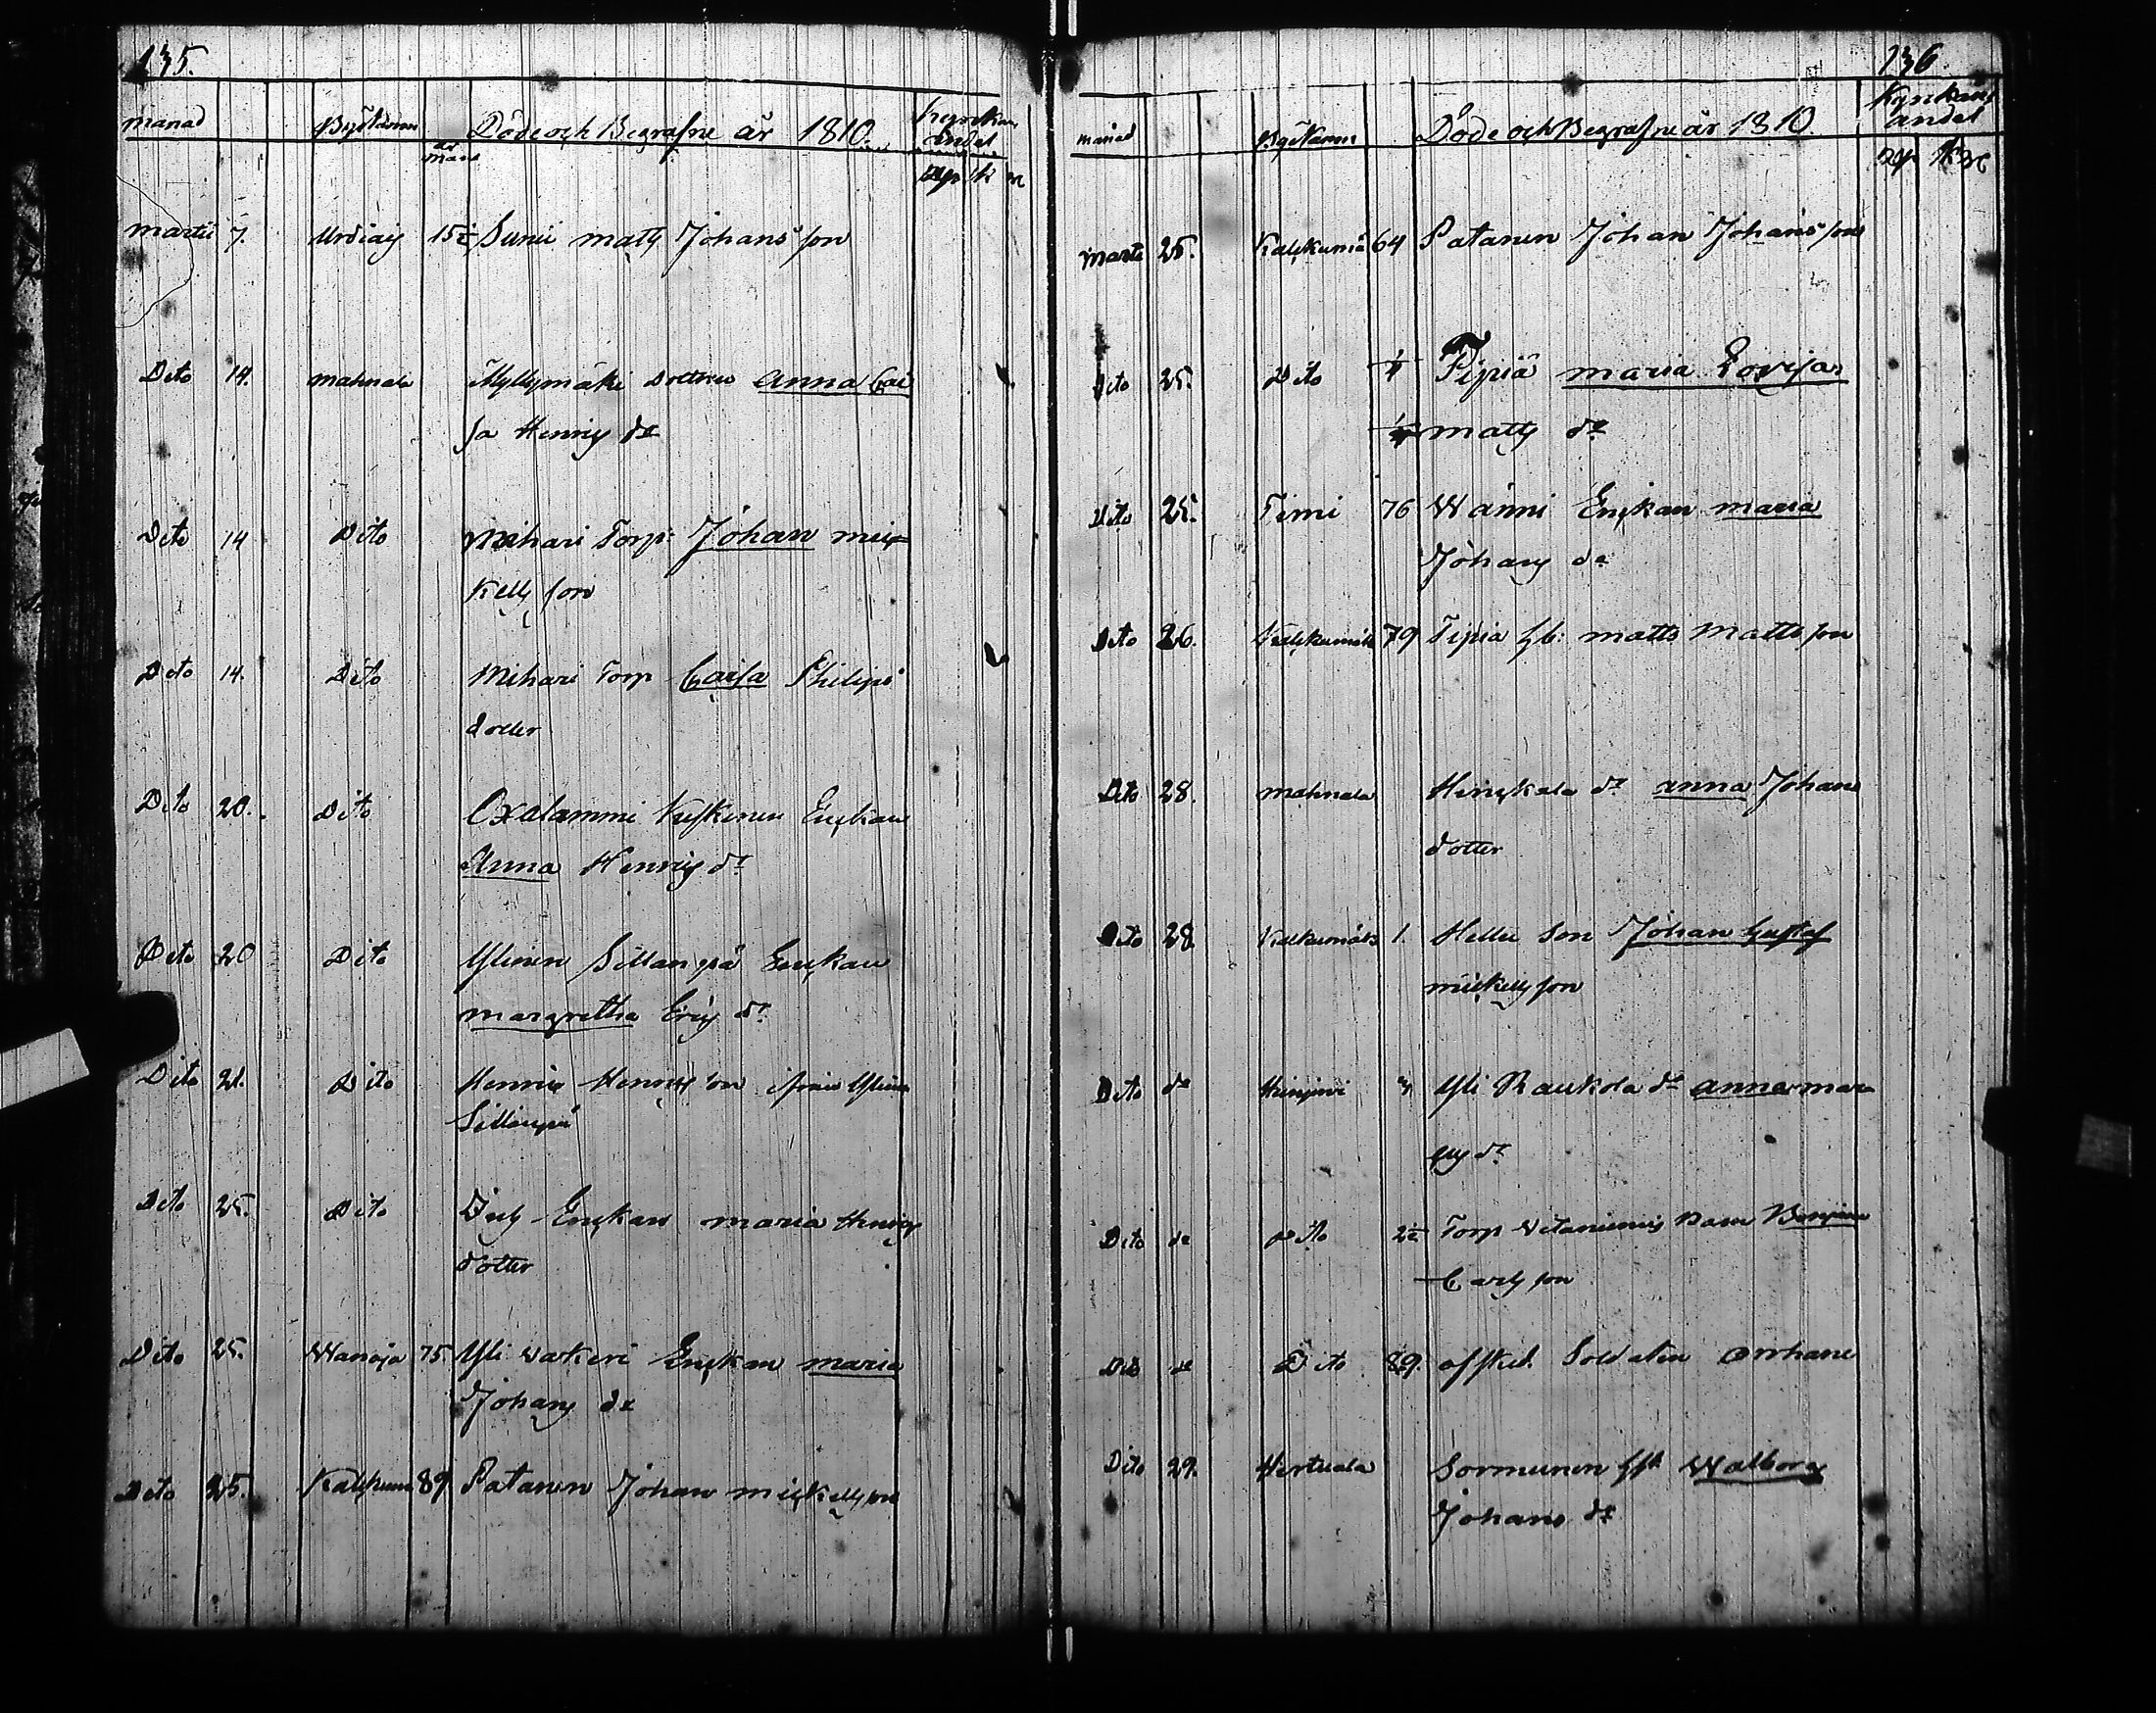 135.
manad Bys Namn Döde och Begrafne år 1810. Kyrckans andel
år man
Rp k
Martii 7. Urdiais 15 Sunii matts Johans son
Dito 14. mahnala Myllymäki dottren Anna Cai
sa Henrics dr
Dito 14 Dito Mihari Torp: Johan mic
kells son
Dito 14. Dito Mihari Torp Caisa Philips
dotter
Dito 20. Dito Oxalammi Enckan
Anna Henrics dr
Dito 20 Dito Ylinen Sillanpä Enckan
margretha Erics dr
Dito 21. Dito Henric Henrics son ifrån Ylinen
Sillanpä
Dito 25. Dito Enckan maria Henrics
dotter
Dito 25. Wanaja 75 Yli warkeri Enckan maria
Johans dr
Dito 25. Kalckunm 89 Patanen Johan mickells son
136
manad Bys Namn Döde och Begrafne år 1810. Kyrckans
andel
Martii 25. Kalckunmä 64 Patanen Johan Johans son
Dito 25. Dito Pipiä maria Lovisa
matts dr
Dito 25. Timi 76 Wänni Enckan maria
Johans dr
Dito 26. Kalckunmäk 79 Tipiä matts matts son
Dito 28. mahnala Hinckala dr anna Johans
dotter
Dito 28. Kalkunmäki 1. Hellu Son Johan Gustaf
mickells son
Dito do Yli Raukola dr anna mar
dr
Dito do Dito Torp Witaniemis Barn Benjam
Carls son
Dito do Dito 89. afsked. Soldaten Orrhane
Dito 29. Hertuala Sormunen Walborg
Johans dr